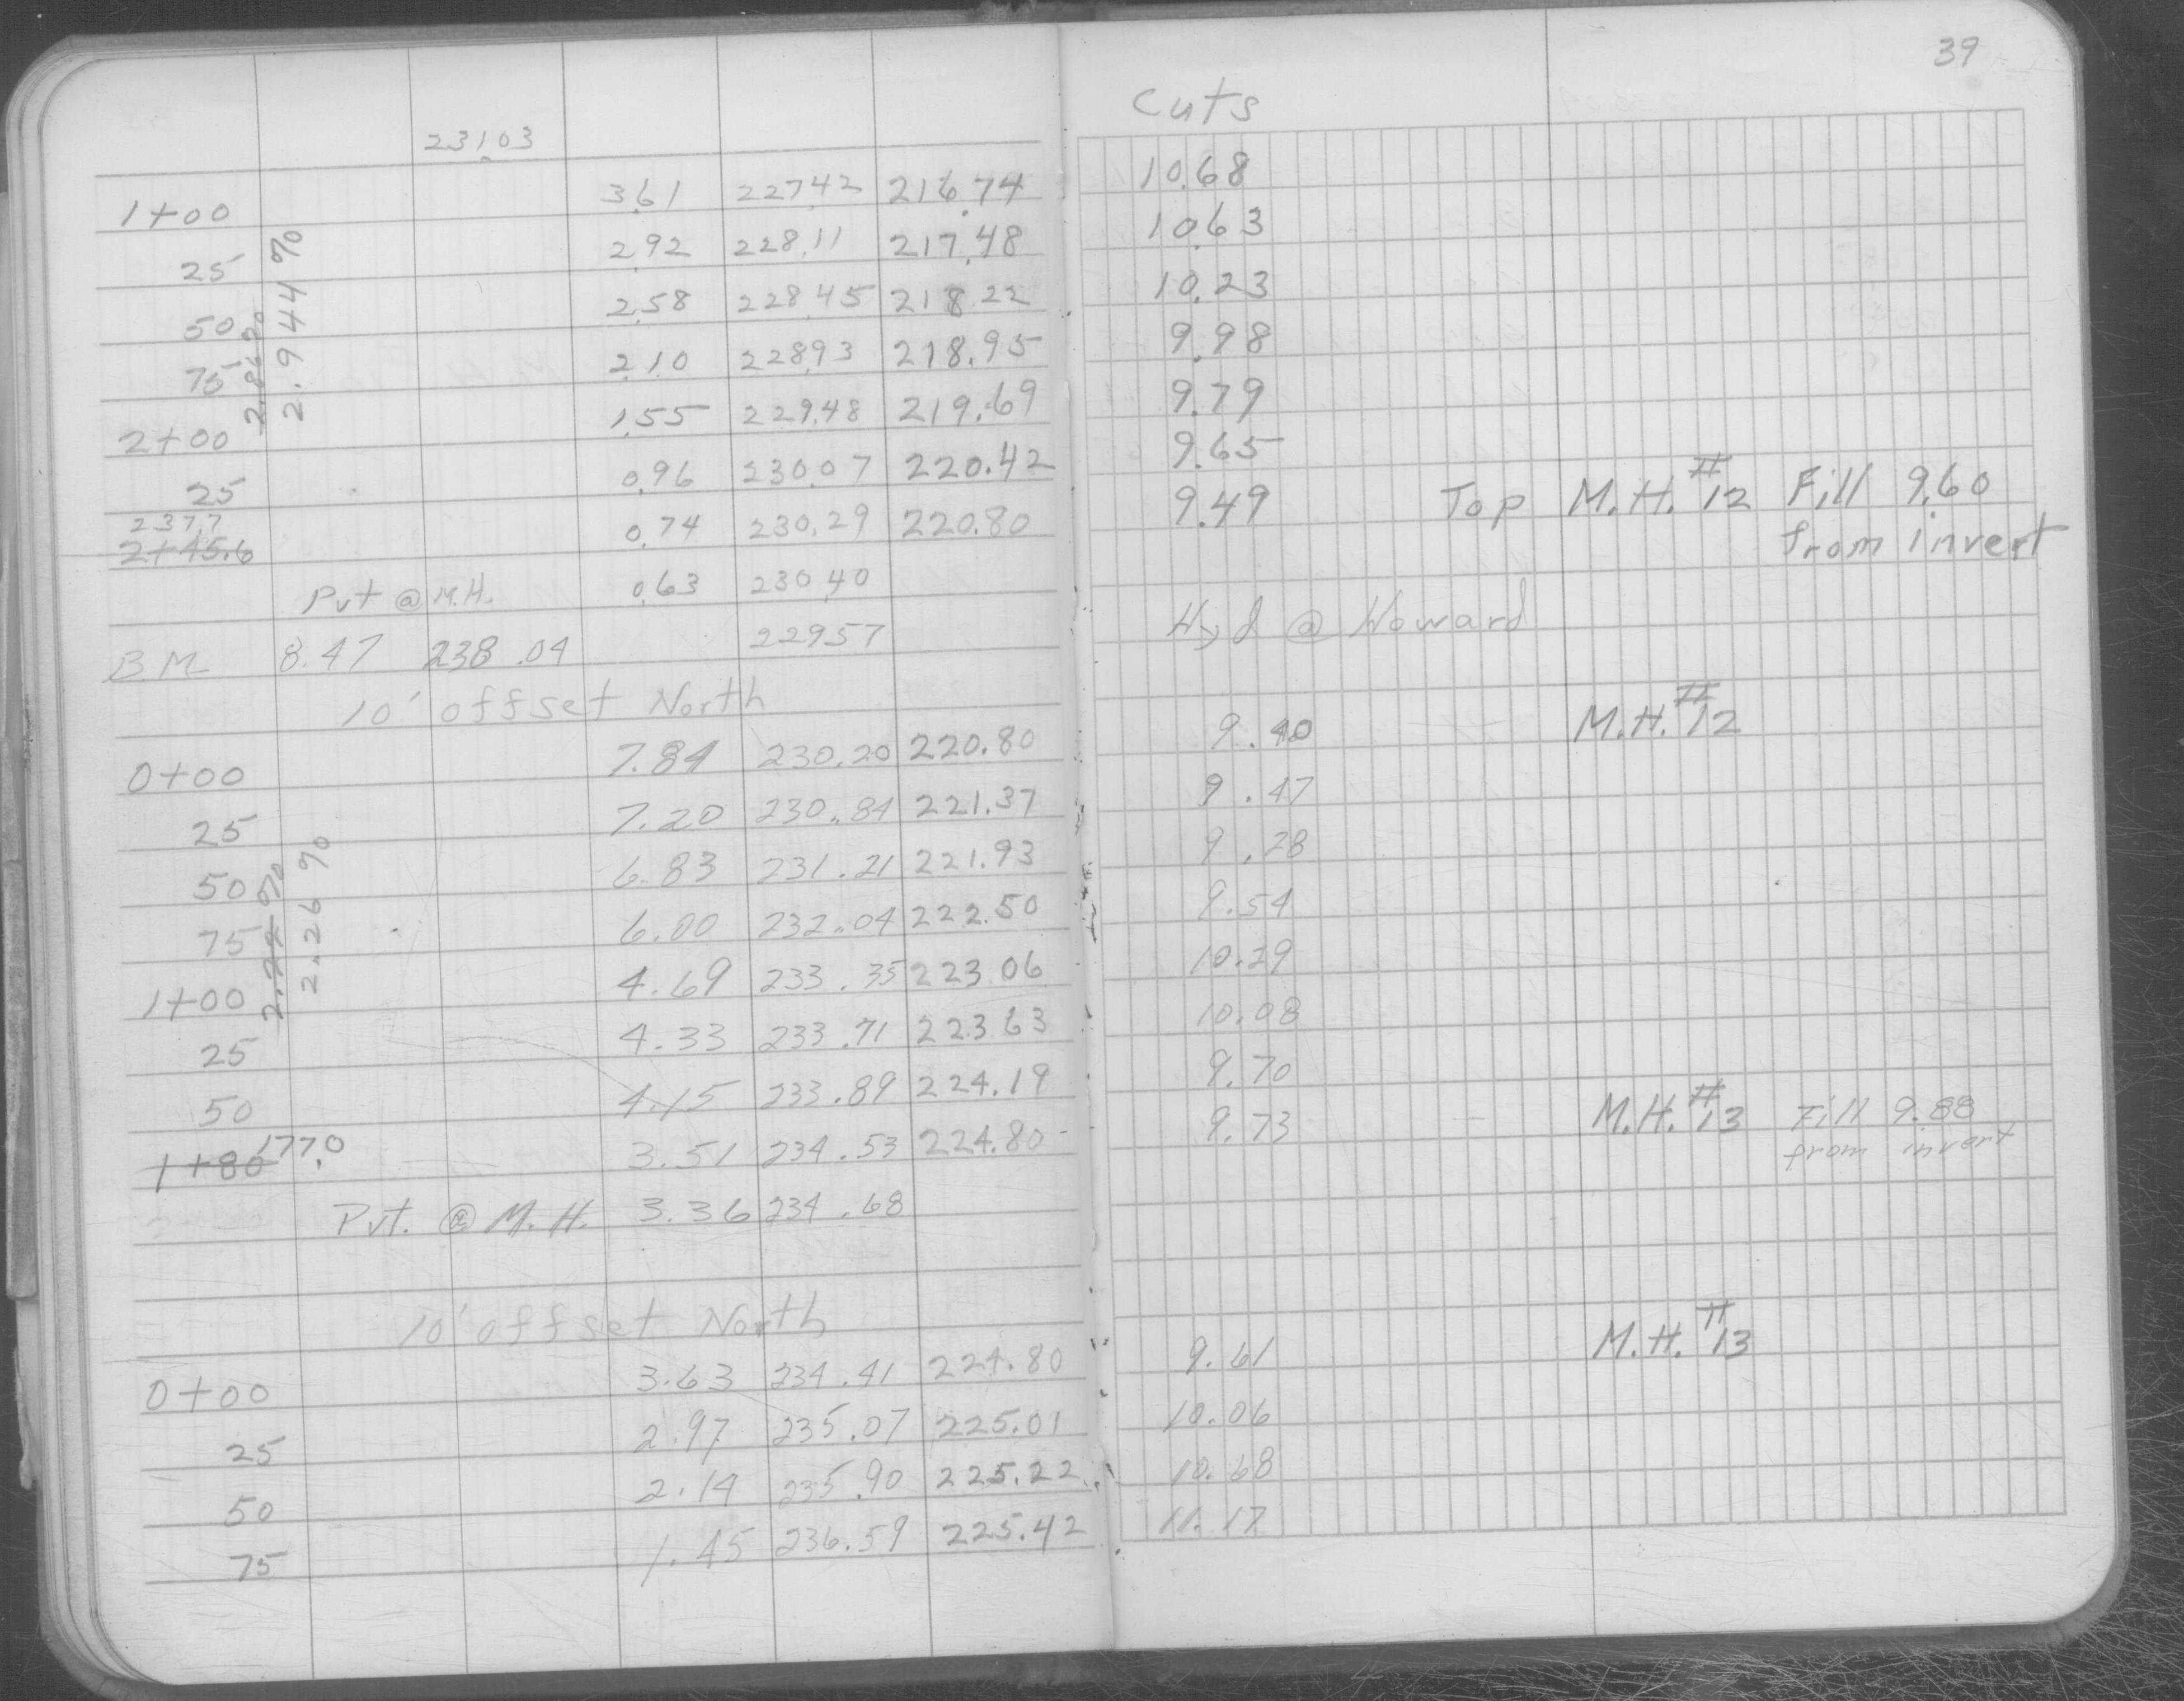 39
Cuts
231.03
1+00 3.61 227.42 216.74 10.68
25 2.92 228.11 217.48 10.63
50 2.58 228.45 218.22 10.23
75 2.10 228.93 218.95 9.98
2+00 1.55 229.48 219.69 9.79
2.944 %
25 0.96 230.07 220.42 9.65
237.7
2+45.6 0.74 230.29 220.80 9.49 Top M.H. #12 Fill 9.60
from invert
Pvt @ M.H. 0.63 230.40
B.M. 8.47 238.04 229.57 Hyd @ Howard
10' offset North
0+00 7.84 230.20 220.80 9.40 M.H. #12
25 7.20 230.84 221.37 9.47
50 6.83 231.21 221.93 9.28
75 6.00 232.04 222.50 9.54
1+00 4.69 233.35 223.06 10.29
2.26 %
25 4.33 233.71 223.63 10.08
50 4.15 233.89 224.19 9.70
1+80 177.0 3.51 234.53 224.80 9.73 M.H. #13 Fill 9.88
from invert
Pvt. @ M.H. 3.36 234.68
10' offset North
0+00 3.63 234.41 224.80 9.61 M.H. #13
25 2.97 235.07 225.01 10.06
50 2.14 235.90 225.22 10.68
75 1.45 236.59 225.42 11.17